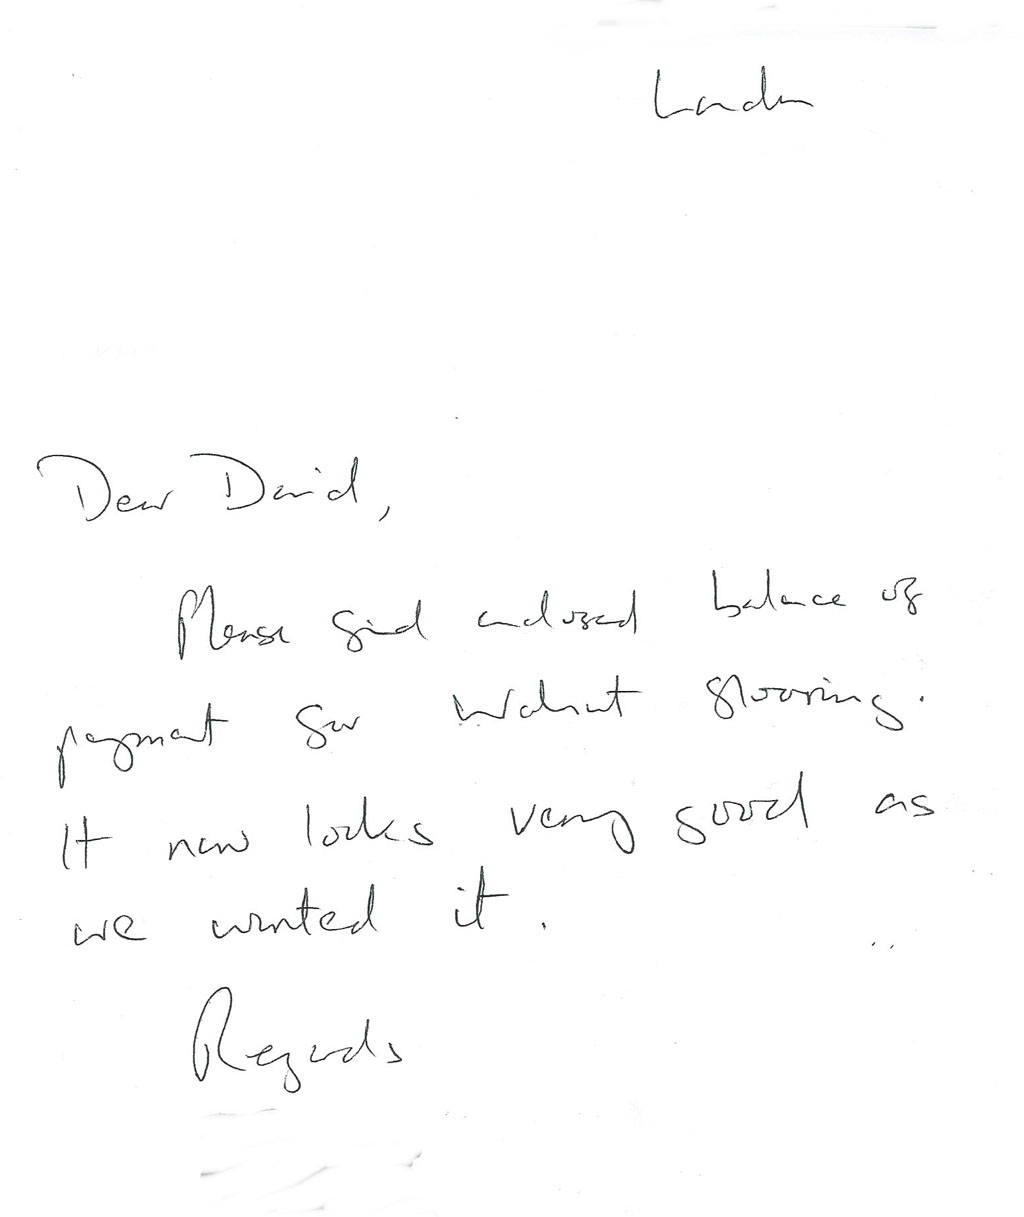 London
Dear David,
Please find enclosed balance of
payment for Walnut flooring.
It now looks very good as
we wanted it.
Regards